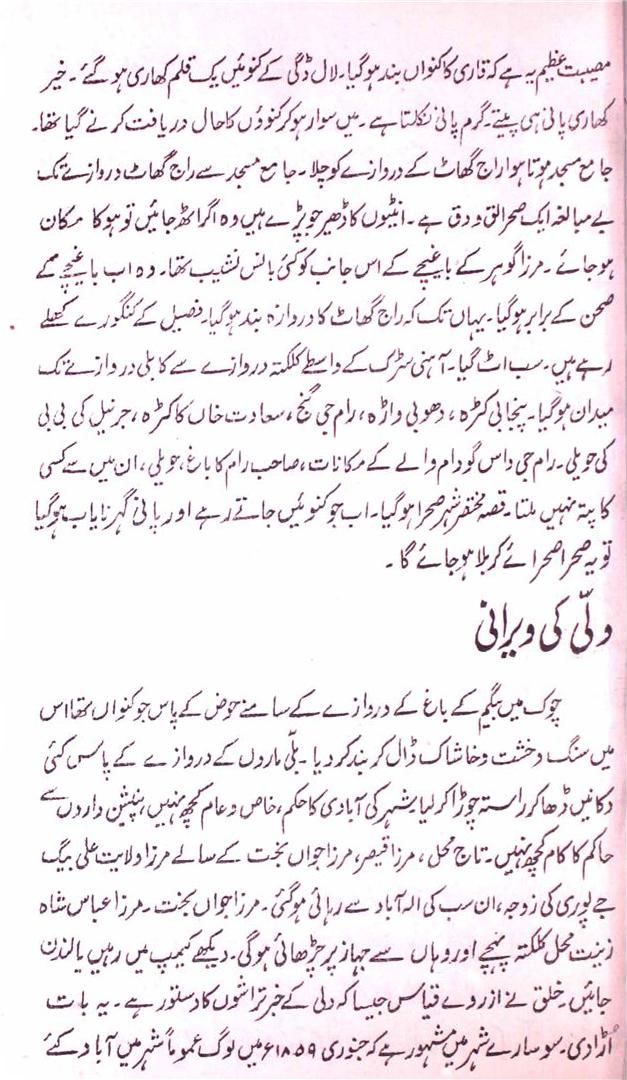 مصیبت عظیم یہ ہے کہ قاری کا کنواں بند ہو گیا۔ لال ڈگی کے کنوئیں یک قلم کھاری ہو گئے۔ خیر
کھاری پانی ہی پیتے۔ گرم پانی نکلتا ہے۔ میں سوار ہو کر کنوؤں کا حال دریافت کرنے گیا تھا۔
جامع مسجد ہوتا ہوا راج گھاٹ کے دروازے کو چلا۔ جامع مسجد سے راج گھاٹ دروازے تک
بے مبالغہ ایک صحرا لق و دق ہے۔ انیٹوں کا ڈھیر جو پڑے ہیں وہ اگر اٹھ جائیں تو ہو کا مکان
ہو جائے۔ مرزا گوہر کے باغیچے کے اس جانب کو کئی بانس نشیب تھا۔ وہ اب باغیچے کے
صحن کے برابر ہو گیا۔ یہاں تک کہ راج گھاٹ کا دروازہ بند ہو گیا۔ فصیل کے کنگورے کھلے
رہے ہیں۔ سب اٹ گیا۔ آہنی سڑک کے واسطے کلکتہ دروازے سے کابلی دروازے تک
میدان ہو گیا۔ پنجابی کٹرہ، دھوبی واڑہ، رام جی گنج، سعادت خاں کا کٹرہ، جرنیل کی بی بی
کی حویلی۔ رام جی داس گودام والے کے مکانات، صاحب رام کا باغ، حویلی، ان میں سے کسی
کا پتہ نہیں ملتا۔ قصہ مختصر شہر صحرا ہو گیا۔ اب جو کنوئیں جاتے رہے اور پانی گہر نایاب ہو گیا
تو یہ صحرا صحرائے کربلا ہو جائے گا۔
دلّی کی ویرانی
چوک میں بیگم کے باغ کے دروازے کے سامنے حوض کے پاس جو کنواں تھا اس
میں سنگ و خشت و خاشاک ڈال کر بند کر دیا۔ بلّی ماروں کے دروازے کے پاس کئی
دکانیں ڈھا کر راستہ چوڑا کر لیا۔ شہر کی آبادی کا حکم، خاص و عام کچھ نہیں، پنشین داروں سے
حاکم کا کام کچھ نہیں۔ تاج محل، مرزا قیصر، مرزا جواں بخت کے سالے مرزا ولایت علی بیگ
جے پوری کی زوجہ، ان سب کی الہ آباد سے رہائی ہو گئی۔ مرزا جواں بخت۔ مرزا عباس شاہ
زینت محل کلکتہ پہنچے اور وہاں سے جہاز پر چڑھائی ہو گی۔ دیکھے کیمپ میں رہیں یا لندن
جائیں۔ خلق نے از روے قیاس جیسا کہ دلی کے خبر تراشوں کا دستور ہے۔ یہ بات
اڑا دی۔ سو سارے شہر میں مشہور ہے کہ جنوری ۱۸۵۹ء میں لوگ عموماً شہر میں آباد کئے